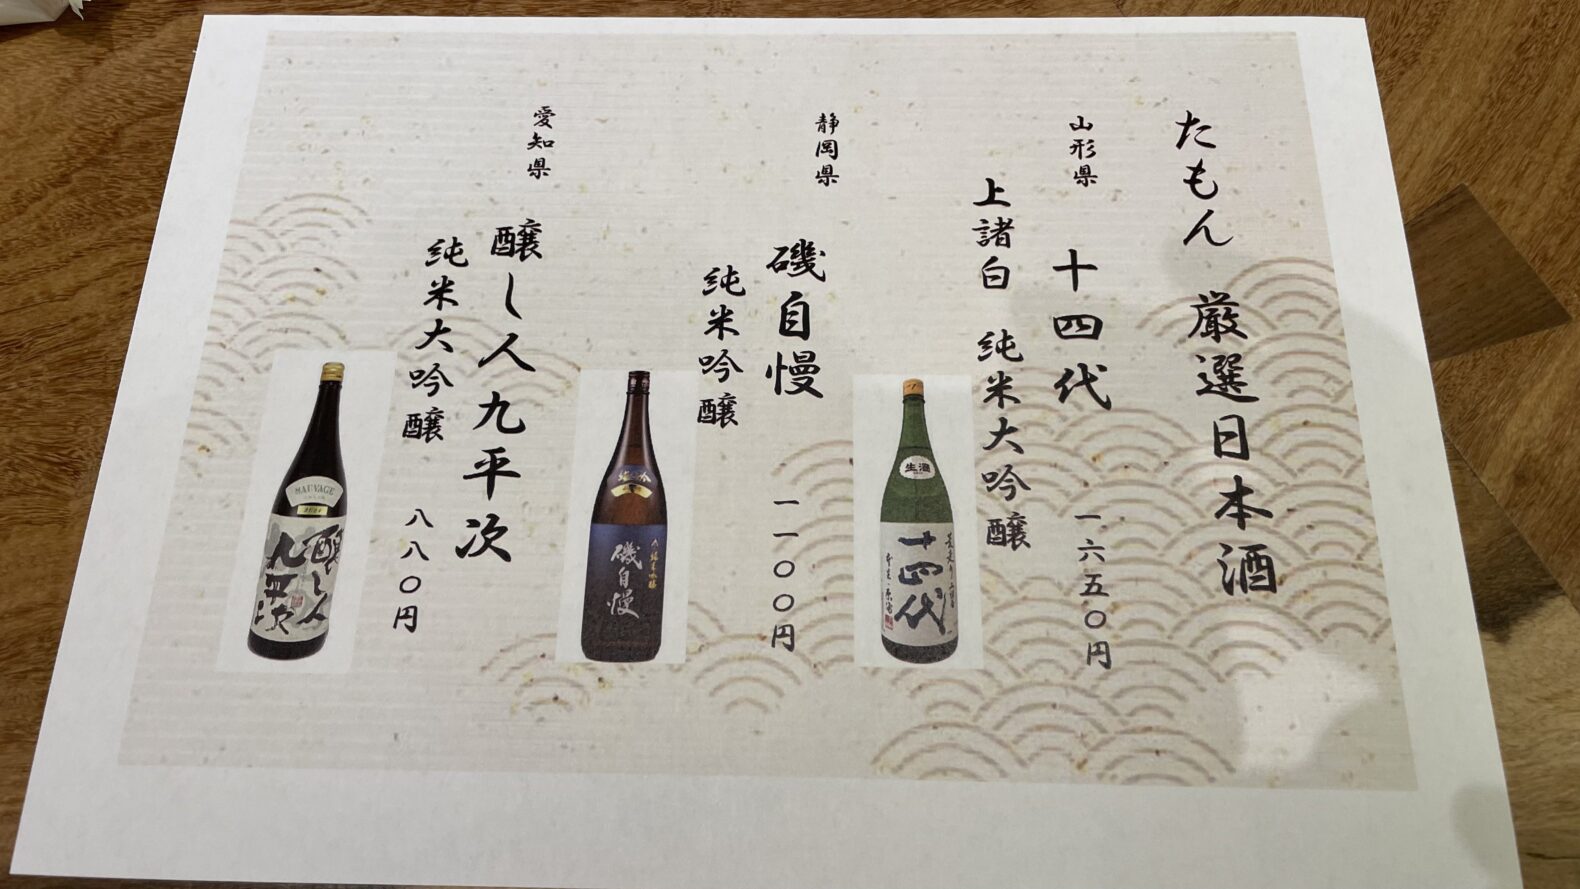 たもん 厳選日本酒
山形県 十四代 一六五〇円
上諸白 純米大吟醸
生酒
十四代
静岡県 磯自慢 一一〇〇円
純米吟醸
磯自慢
愛知県 醸し人九平次
純米大吟醸 八八〇円
SAUVAGE
醸し人
九平次